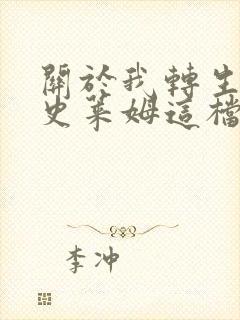 關於我轉生
史萊姆這檔
李冲